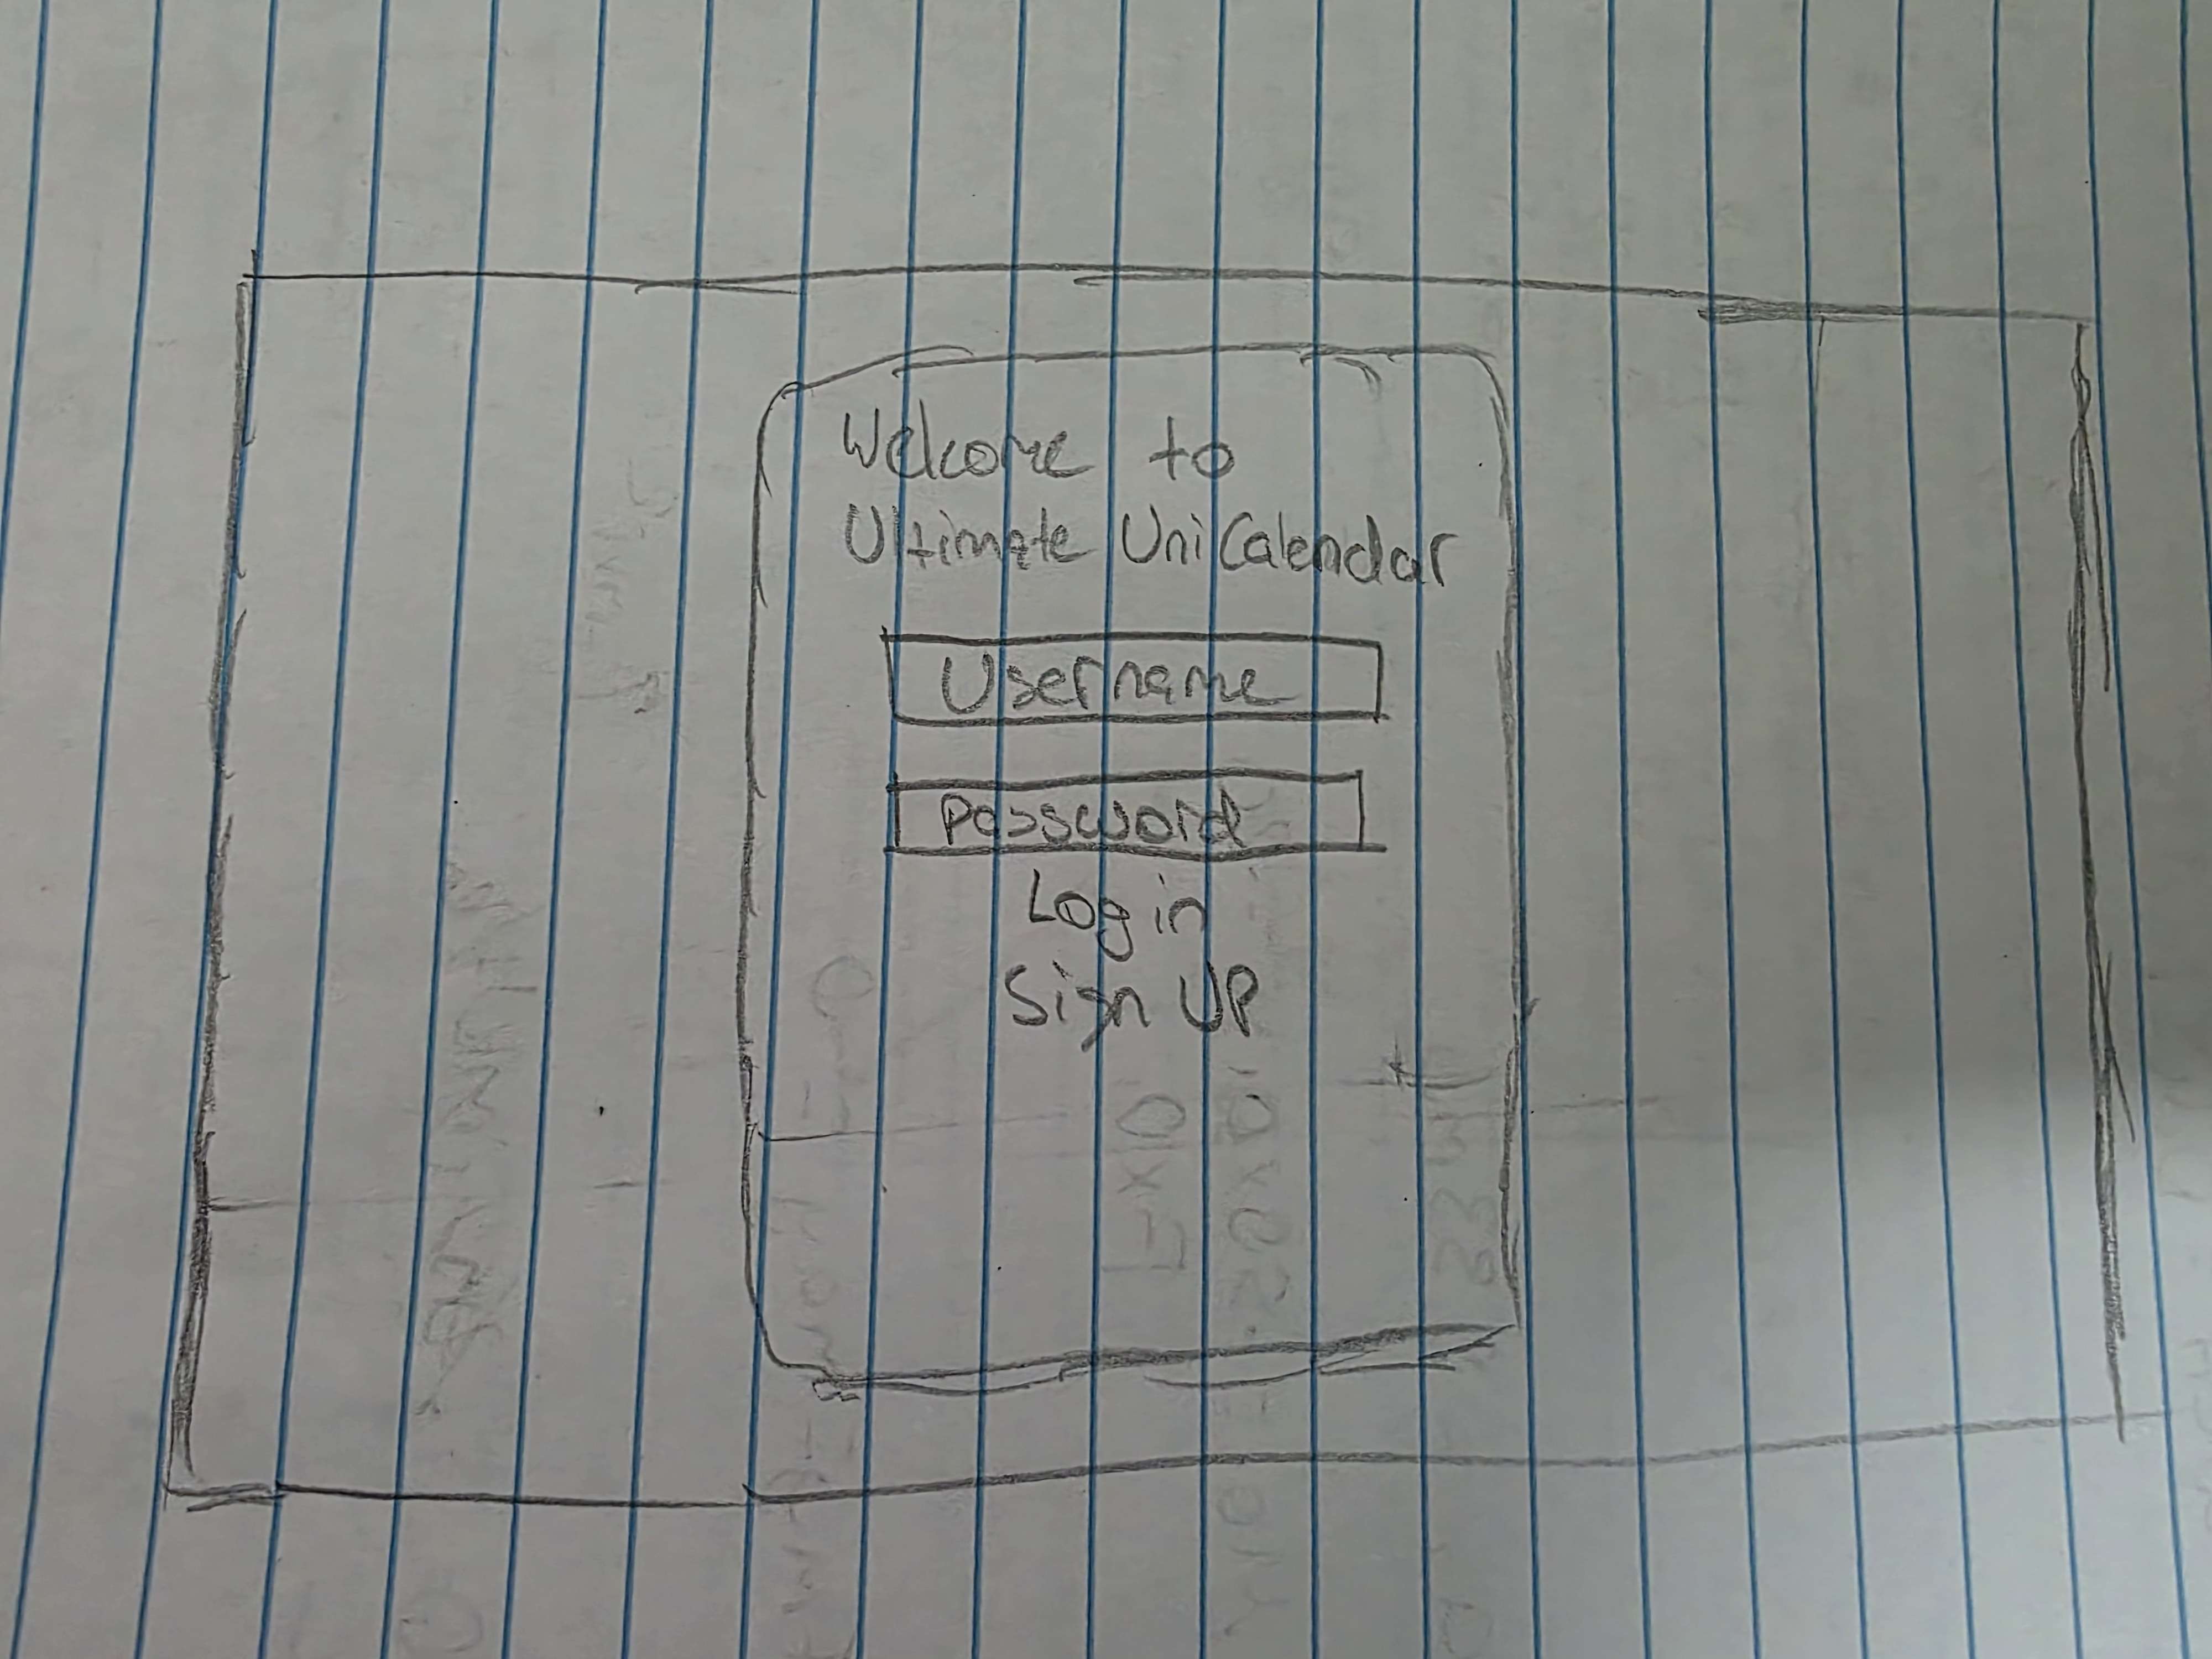 Welcome to
Ultimate UniCalendar
Username
Password
Log in
Sign UP